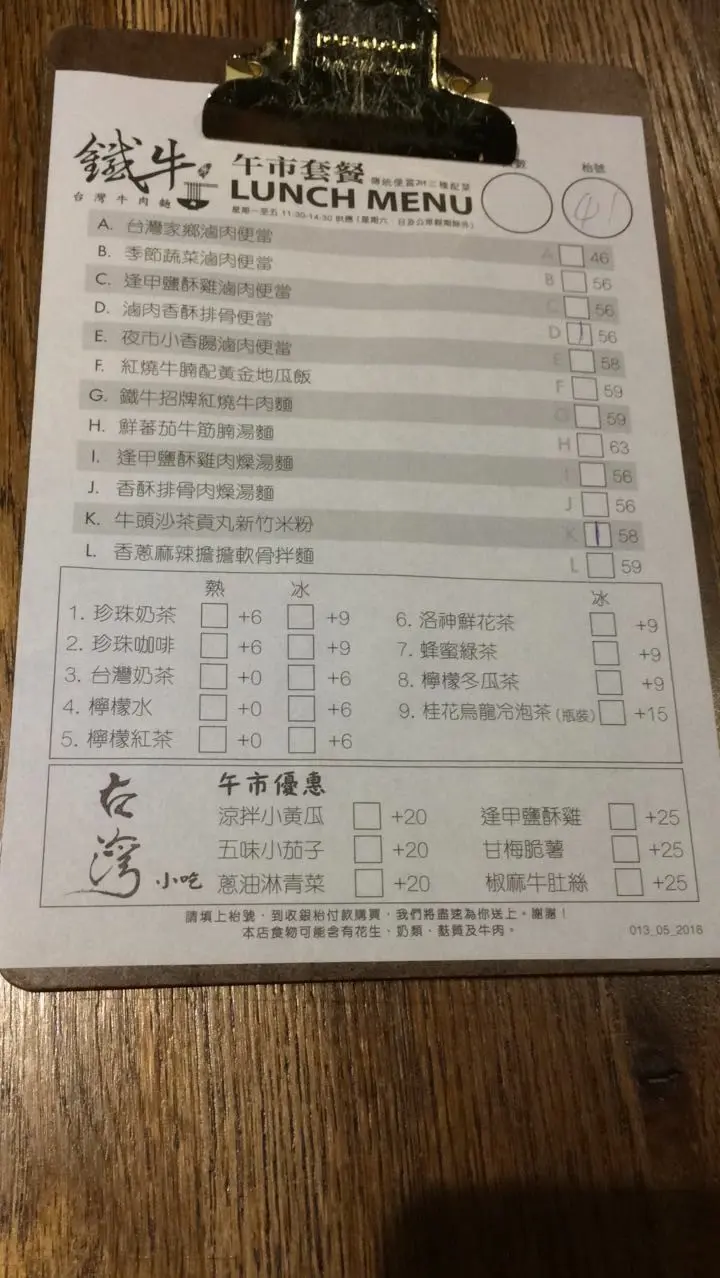 鐵牛
台灣牛肉麵
午市套餐 傳統便當附三種配菜
LUNCH MENU
星期一至五 11:30-14:30 供應 (星期六、日及公眾假期除外)
數
枱號
41
A. 台灣家鄉滷肉便當 A 46
B. 季節蔬菜滷肉便當 B 56
C. 逢甲鹽酥雞滷肉便當 C 56
D. 滷肉香酥排骨便當 D 56
E. 夜市小香腸滷肉便當 E 58
F. 紅燒牛腩配黃金地瓜飯 F 59
G. 鐵牛招牌紅燒牛肉麵 G 59
H. 鮮蕃茄牛筋腩湯麵 H 63
I. 逢甲鹽酥雞肉燥湯麵 I 56
J. 香酥排骨肉燥湯麵 J 56
K. 牛頭沙茶貢丸新竹米粉 K 58
L. 香蔥麻辣擔擔軟骨拌麵 L 59
熱 冰
1. 珍珠奶茶 +6 +9
2. 珍珠咖啡 +6 +9
3. 台灣奶茶 +0 +6
4. 檸檬水 +0 +6
5. 檸檬紅茶 +0 +6
冰
6. 洛神鮮花茶 +9
7. 蜂蜜綠茶 +9
8. 檸檬冬瓜茶 +9
9. 桂花烏龍冷泡茶 (瓶裝) +15
台灣小吃
午市優惠
涼拌小黃瓜 +20 逢甲鹽酥雞 +25
五味小茄子 +20 甘梅脆薯 +25
蔥油淋青菜 +20 椒麻牛肚絲 +25
請填上枱號，到收銀枱付款購買，我們將盡速為你送上。謝謝！
本店食物可能含有花生、奶類、麩質及牛肉。
013_05_2018